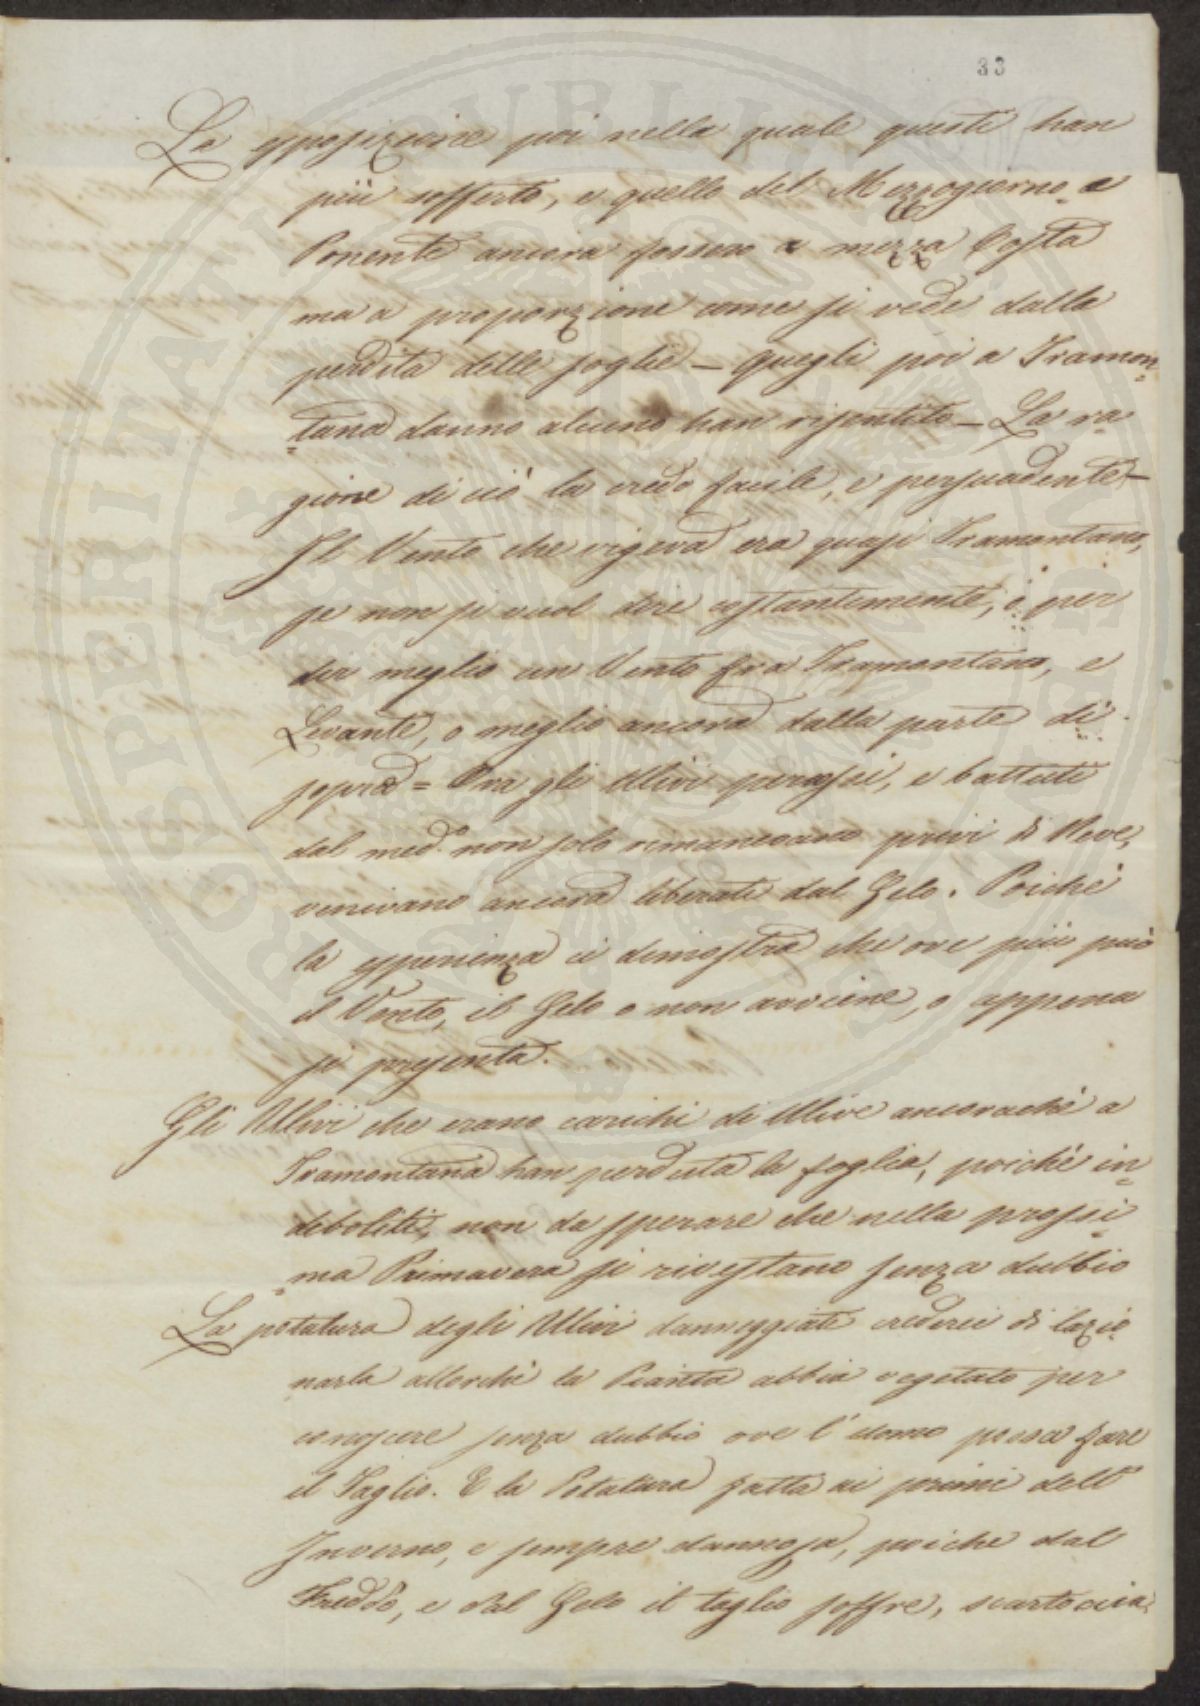 33
La esposizione poi nella quale questi han
più sofferto, e quello del Mezzogiorno, e
Ponente ancora fossero a mezza Costa
ma a proporzione come si vede dalla
perdita delle foglie — quegli poi a Tramon=
tana danno alcuno han risentito — La ra=
gione di ciò la credo facile, e persuadente —
Il Vento che vigeva era quasi Tramontano,
se non si vuol dire costantemente, è per
dir meglio un Vento fra Tramontano, e
Levante, o meglio ancora dalla parte di
sopra = Ora gli Ulivi percossi, e battuti
dal med.º non solo rimanevano privi di Neve,
venivano ancora liberati dal Gelo. Poiché
la esperienza ci dimostra che ove più può
il Vento, il Gelo o non avviene, o appena
si presenta.
Gli Ulivi che erano carichi di Ulive ancorachè a
Tramontana han perduta la foglia, poichè in=
deboliti, non da sperare che nella prossi=
ma Primavera si rivestano senza dubbio
La potatura degli Ulivi danneggiati crederei di
narla allorchè la Pianta abbia vegetato per
conoscere senza dubbio ove l'uomo possa fare
il Taglio. E la Potatura fatta ai primi dell'
Inverno, e sempre dannosa, poiche dal
Freddo, e dal Gelo il taglio soffre,